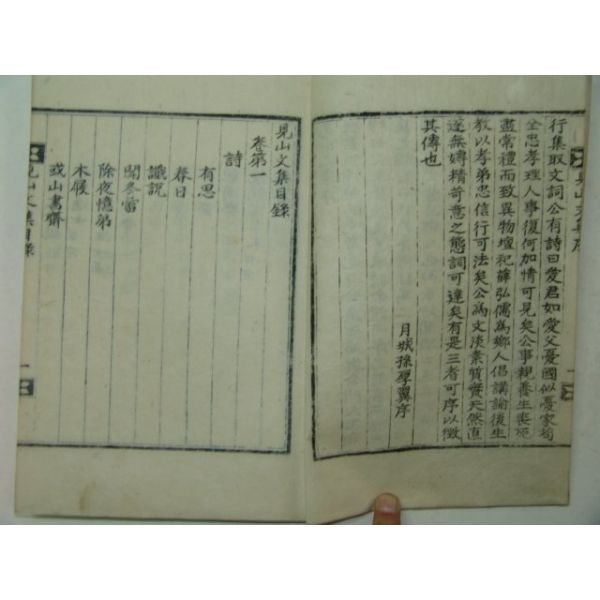 行集取文詞公有詩曰愛君如愛父憂國似憂家苟
全忠孝理人事復何加情可見矣公事親養生喪死
盡常禮而致異物壇祀薛弘儒爲鄉人倡講諭後生
教以孝弟忠信行可法矣公爲文淡素質實天然直
遂無媾精苛意之態詞可達矣有是三者可序以徵
其傳也
月城孫學翼序
見山文集序
一
見山文集目錄
卷第一
詩
有思
春日
讖說
聞冬雷
除夜憶弟
木屐
或山書齋
見山文集目錄
一